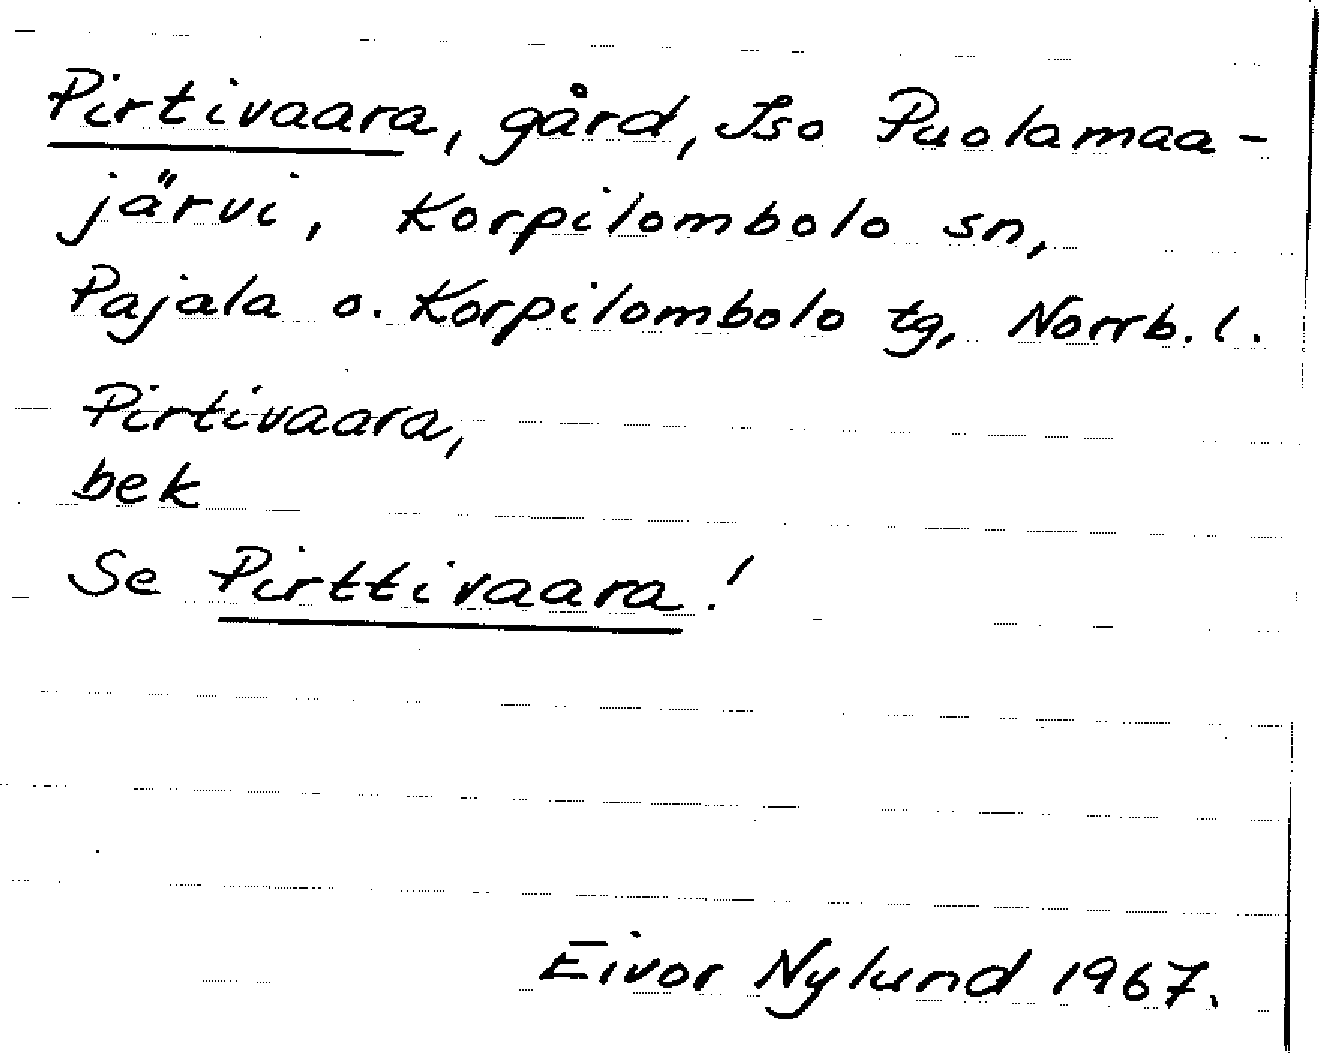 Pirtivaara, gård, Iso Puolamaa-
järvi, Korpilombolo sn,
Pajala o. Korpilombolo tg, Norrb. l.
Pirtivaara,
bek
Se Pirttivaara!
Eivor Nylund 1967.